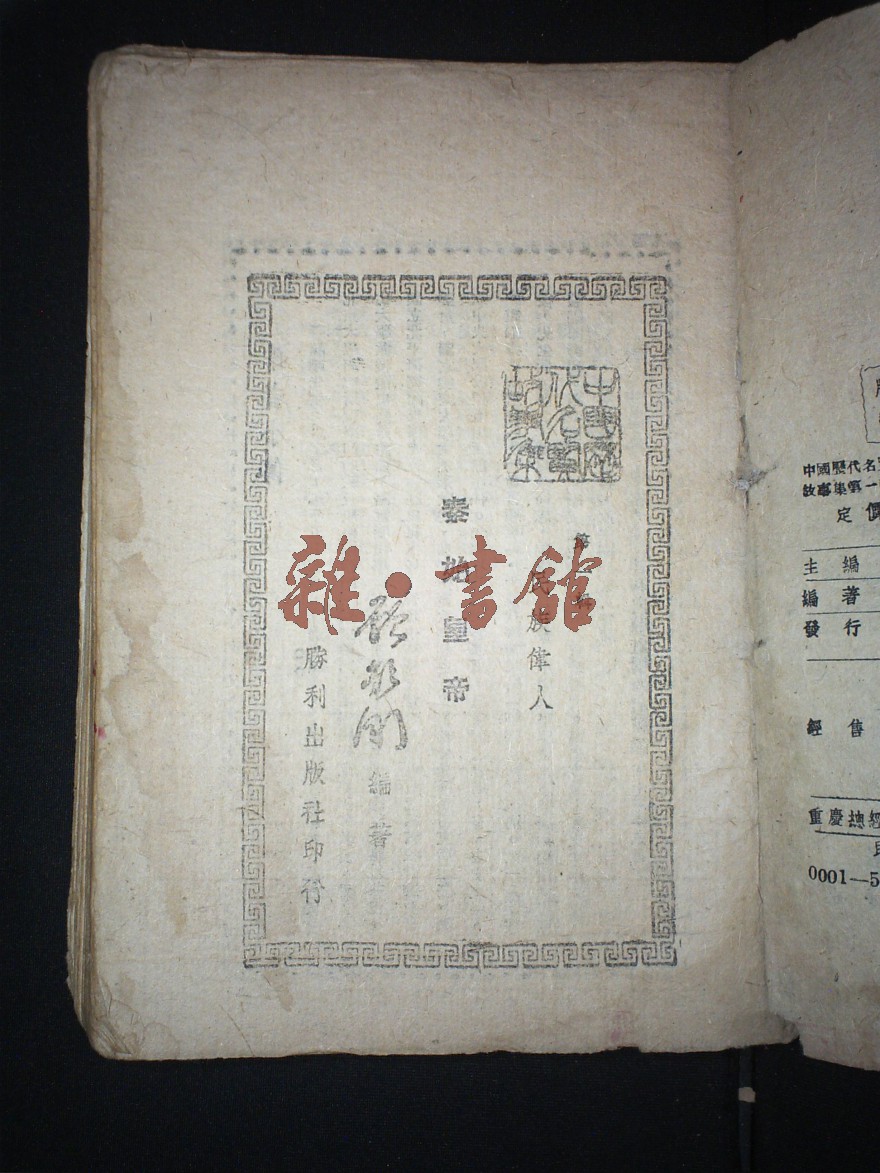 中國歷
代名賢
故事集
民族偉人
秦始皇帝
顧頡剛
編著
勝利出版社印行
雜·書館
中國歷代名
故事集第一
定價
主編
編著
發行
經售
重慶
0001—5